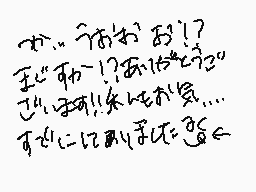 が... うおお お!?
まじすか!?ありがとうご
ざいます!!私もお気....
すでにしてありました